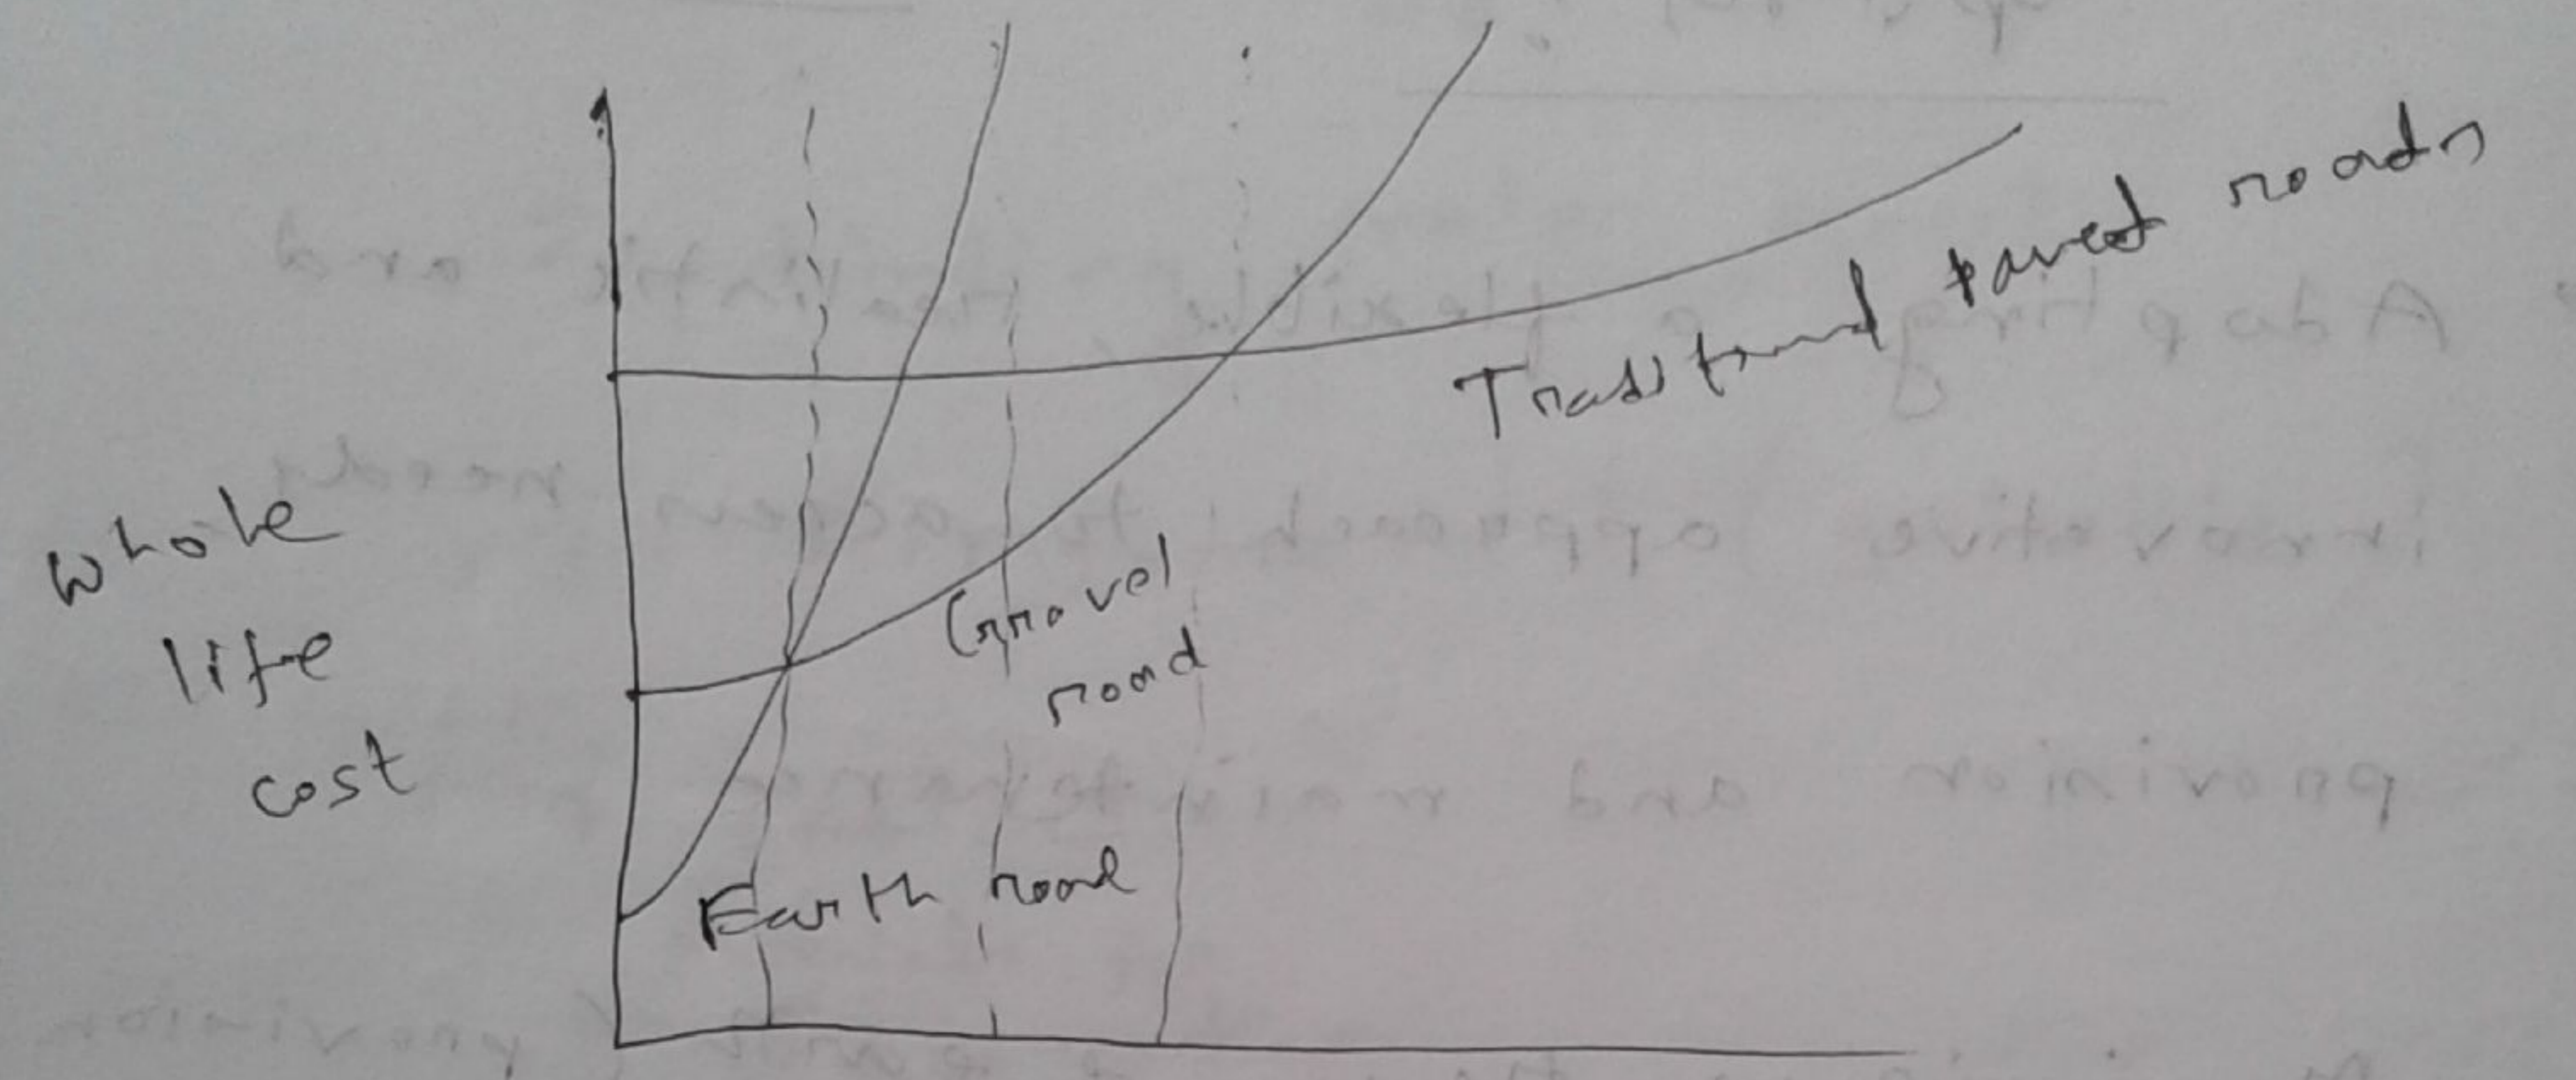 whole
life
cost
Traditional paved roads
Gravel
road
Earth road